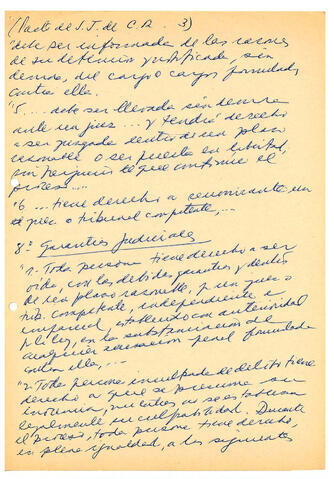 (Pacto de S.J. de C.R. 3)
"debe ser informada de las razones
de su detención y notificada, sin
demora, del cargo o cargos formulados
contra ella.
"5 .... debe ser llevada sin demora
ante un juez ... y tendrá derecho
a ser juzgada dentro de un plazo
razonable o ser puesta en libertad,
sin perjuicio de que continúe el
proceso....
"6 ... tiene derecho a
juez o tribunal competente, ...
8.º Garantías Judiciales
"1. Toda persona tiene derecho a ser
oída, con las debidas garantías y dentro
de un plazo razonable, por un juez o
trib. competente, independiente e
imparcial, establecido con anterioridad
por la ley, en la sustanciación de
cualquier acusación penal formulada
contra ella, ...
"2. Toda persona inculpada de delito tiene
derecho a que se presuma su
inocencia, mientras no se establezca
legalmente su culpabilidad. Durante
el proceso, toda persona tiene derecho,
en plena igualdad, a las siguientes